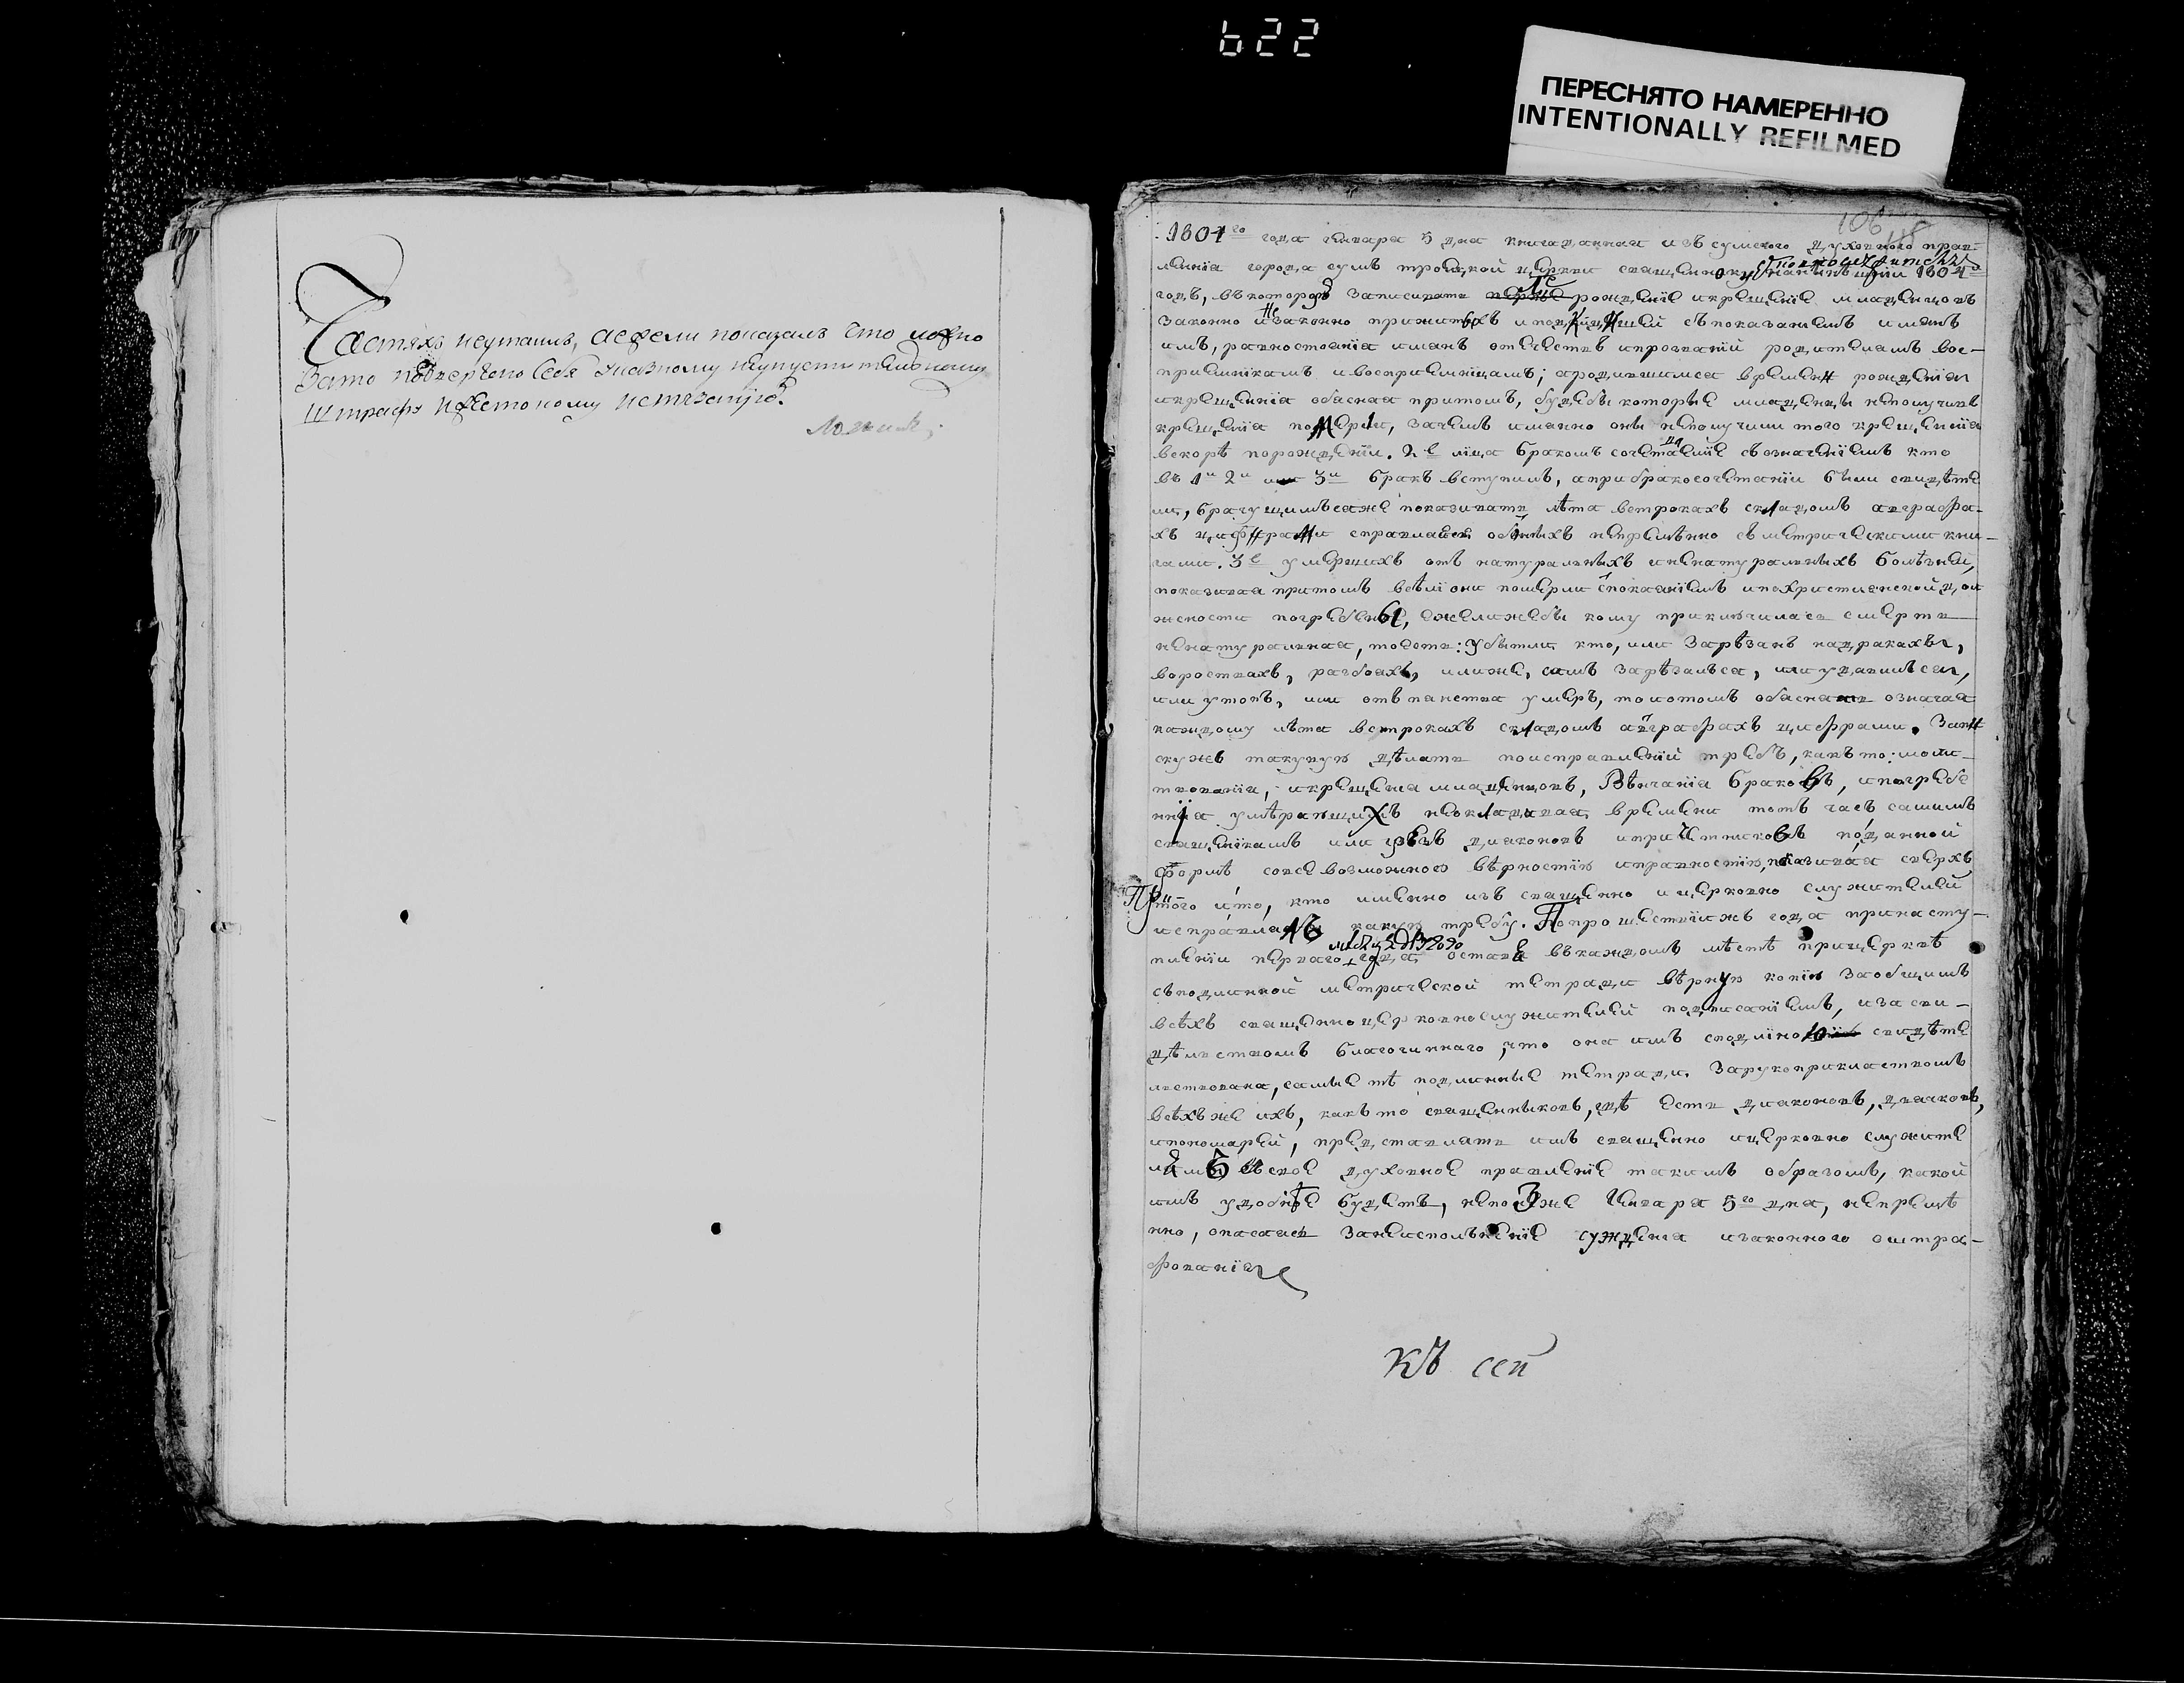 622
ПЕРЕСНЯТО НАМЕРЕННО
INTENTIONALLY REFILMED
Частяхъ неутаилъ, аежели показалъ что ложно
Зато подвергаю себя указному неупустительному
штрафу и жестокому истязанію.
106
1804го года генваря 5 дня книга данная изъ сумского духовного прав-
ленія города сумъ троецкой церкви священнику 1804
годъ, въ которой записывать рожденіе икрещеніе младенцовъ
законно инезаконно прижитыхъ съпоказаніемъ именъ
имъ, равностоянія именъ отечествъ ипрозваній родителямъ вос-
пріемникамъ ивоспріемницамъ; ародившимся времени рожденія
икрещенія обясняя притомъ, будебы которые младенцы неполучивъ
крещенія померли, зачемъ именно оны неполучили того крещенія
вскорѣ порожденіи. 2е лица бракомъ сочетанніе съозначеніемъ кто
въ 1й 2й или 3й бракъ вступилъ, априбракосочетаніи были свидѣте
ли, брачущимъсяже показивать лѣта встрокахъ складомъ авграфа-
хъ цифрами справляясь обоныхъ непремѣнно съметрическими кни-
гами. 3е умершихъ отъ натуральныхъ иненатуральныхъ болѣзней,
показивая притомъ всѣли они померли спокаяніемъ ипохристианской дол
жности погребены, ежелижебы кому приключилась смерть
ненатуралная, тоесть: убытли кто, или зарѣзанъ надракахъ,
вороствахъ, разбояхъ, илиже, самъ зарѣзалъся, или удавилъся,
или утопъ, или отъ пянства умеръ, то ютомъ обяснять означая
каждому лѣта встрокахъ складомъ авграфахъ цифрами. Запи
скужъ такуюю дѣлать поисправленіи требъ, какъ то: моли-
твованія, икрещенія младенцовъ, Вѣнчанія браковъ, ипогребе
нія умѣрающихъ неокладивая времени тотъ часъ самимъ
священикамъ или чрезъ дияконовъ ипричетниковъ поданной
формѣ совсевозможною вѣрностію исправностію, показивая сверхъ
того ито, кто именно изъ священно ицерковно служителей
исправлялъ какую требу. Попрошествіижъ года принасту-
пленіи первого оставя въкаждомъ мѣстѣ прицерквѣ
съподлинной метрической тетради вѣрную копію заобщимъ
всѣхъ священноцерковнослужителей подписаніемъ, иза сви-
дѣлствомъ благочинного, что она имъ сподлиною свидѣте
лствована, самые тѣ подлинные тетради. Зарукоприкластвомъ
всѣхъже ихъ, какъто священниковъ, гдѣ есть дияконовъ, дьячковъ,
ипономарей, представлять имъ священно ицерковно служите
лямъ въсвое духовное правленіе такимъ образомъ, какой
имъ удобнѣе будетъ, непозже генваря 5го дня, непремѣ
нно, опасаясь занеисполъненіе сужденія изаконного оштра-
фованія
Къ сей